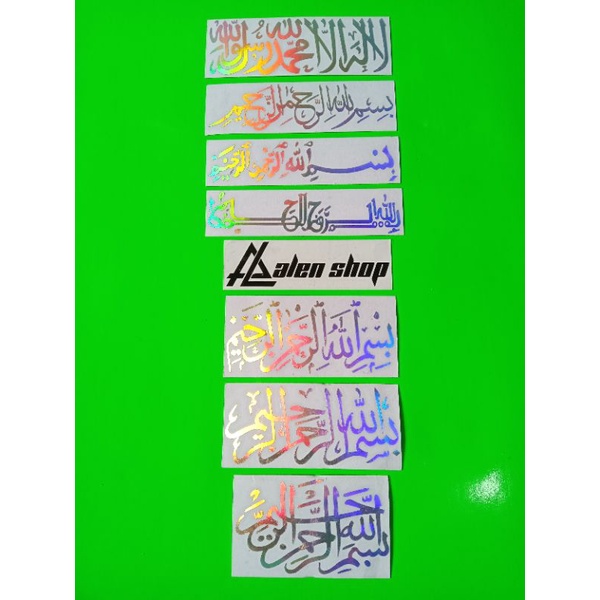 لا إله إلا الله محمد رسول الله
بسم الله الرحمن الرحيم
بسم الله الرحمن الرحيم
بسم الله الرحمن الرحيم
alen shop
بسم الله الرحمن الرحيم
بسم الله الرحمن الرحيم
بسم الله الرحمن الرحيم